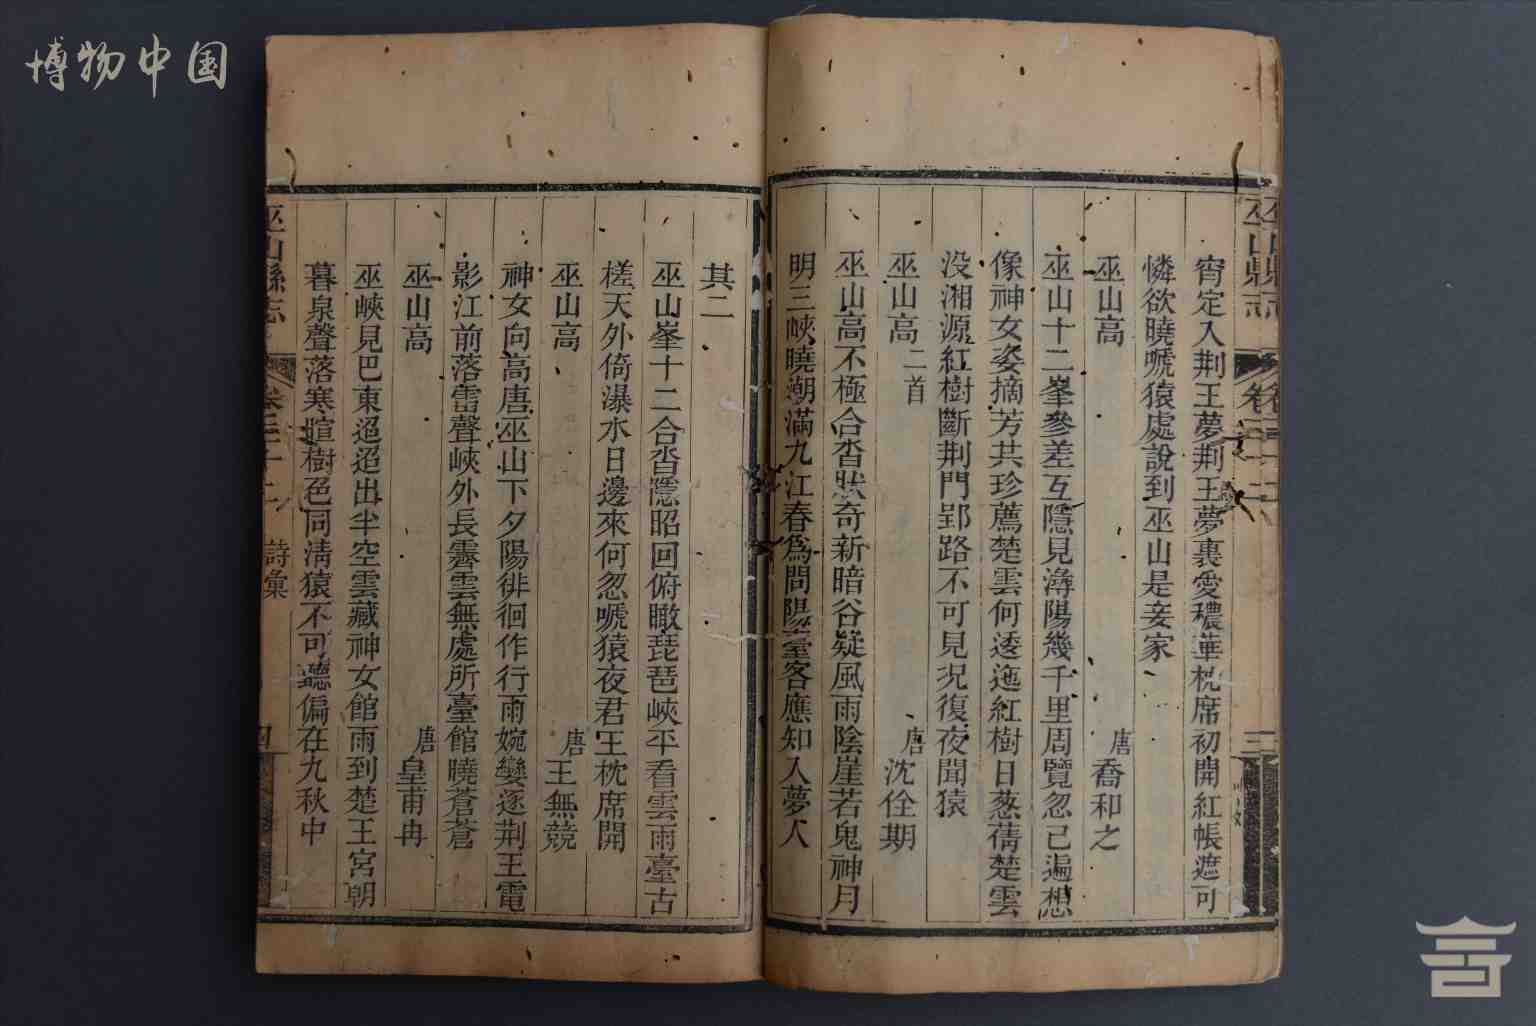 博物中国
巫山縣志
卷三十二
三
宵定入荆王夢荆王夢裏愛穠華枕席初開紅帳遮可
憐欲曉嗁猿處說到巫山是妾家
巫山高 唐 喬和之
巫山十二峯參差互隱見潯陽幾千里周覽忽已遍想
像神女姿摘芳共珍薦楚雲何逶迤紅樹日葱蒨楚雲
没湘源紅樹斷荆門郢路不可見况復夜聞猿
巫山高二首 唐 沈佺期
巫山高不極合沓狀奇新暗谷疑風雨陰崖若鬼神月
明三峽曉潮滿九江春爲問陽臺客應知入夢人
其二
巫山峯十二合沓隱昭回俯瞰琵琶峽平看雲雨臺古
槎天外倚瀑水日邊來何忽嗁猿夜君王枕席開
巫山高 唐 王無競
神女向高唐巫山下夕陽徘徊作行雨婉孌逐荆王電
影江前落雷聲峽外長霽雲無處所臺館曉蒼蒼
巫山高 唐 皇甫冉
巫峽見巴東迢迢出半空雲藏神女館雨到楚王宮朝
暮泉聲落寒暄樹色同淸猿不可聽偏在九秋中
巫山縣志
卷三十二 詩彙
四